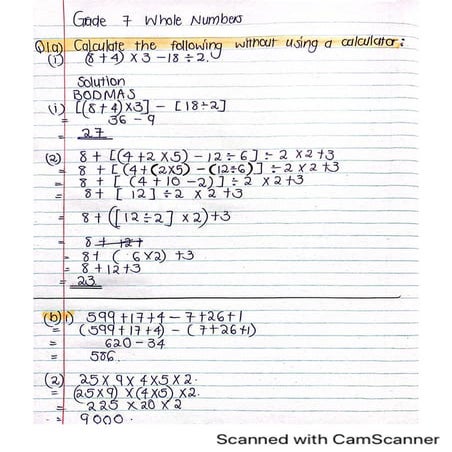 Grade 7 Whole Numbers
Q1.a) Calculate the following without using a calculator:
(i) (8+4) × 3 − 18 ÷ 2.
Solution
BODMAS
(i) [(8+4)×3] − [18÷2]
= 36 − 9
= 27
(2) 8 + [(4+2×5) − 12÷6] ÷ 2 × 2 + 3
= 8 + [(4+(2×5) − (12÷6)] ÷ 2 × 2 + 3
= 8 + [(4+10 −2)] ÷ 2 × 2 + 3
= 8 + [12] ÷ 2 × 2 + 3
= 8 + ([12÷2] × 2) + 3
= 8 + 12 +
= 8 + (6×2) + 3
= 8 + 12 + 3
= 23
(b) i) 599 + 17 + 4 − 7 + 26 + 1
= (599 + 17 + 4) − (7 + 26 + 1)
= 620 − 34
= 586.
(2) 25 × 9 × 4 × 5 × 2.
= (25×9) × (4×5) × 2.
= 225 × 20 × 2
= 9000.
Scanned with CamScanner